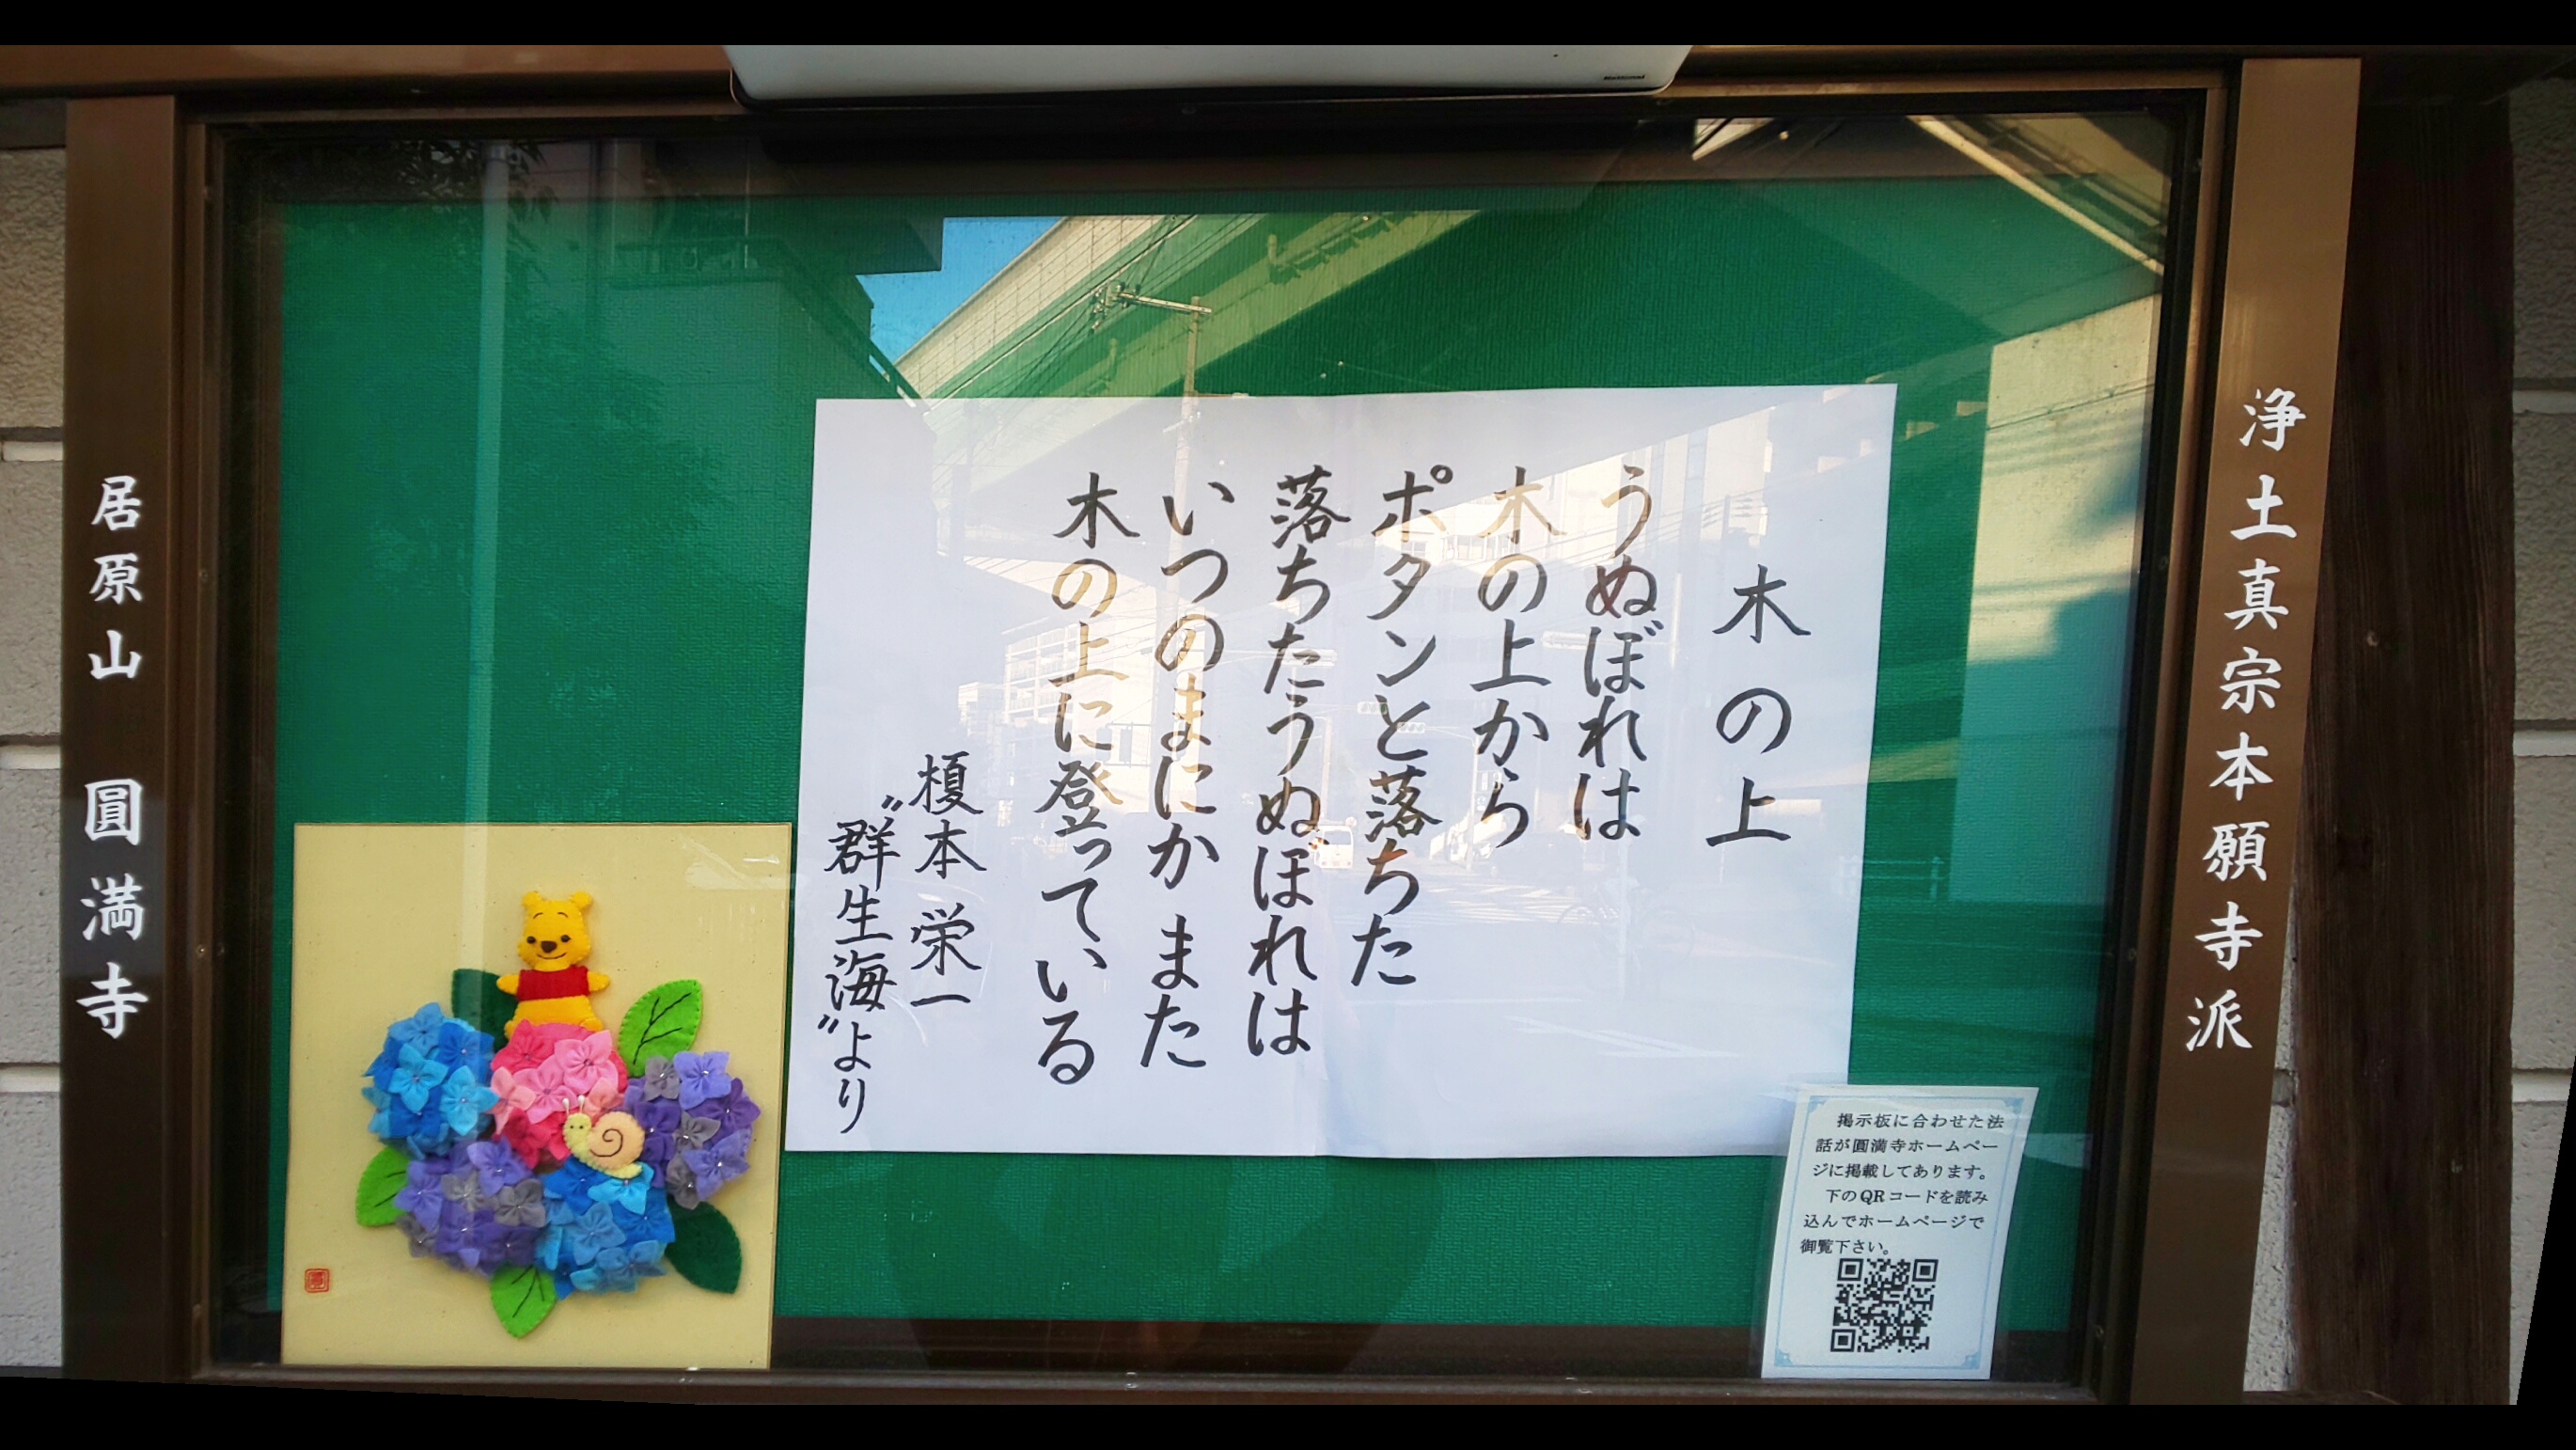 浄土真宗本願寺派
木の上
うぬぼれは
木の上から
ポタンと落ちた
落ちたうぬぼれは
いつのまにか また
木の上に登っている
榎本 栄一
〝群生海〟より
居原山 圓満寺
掲示板に合わせた法
話が圓満寺ホームペー
ジに掲載してあります。
下のQRコードを読み
込んでホームページで
御覧下さい。
National